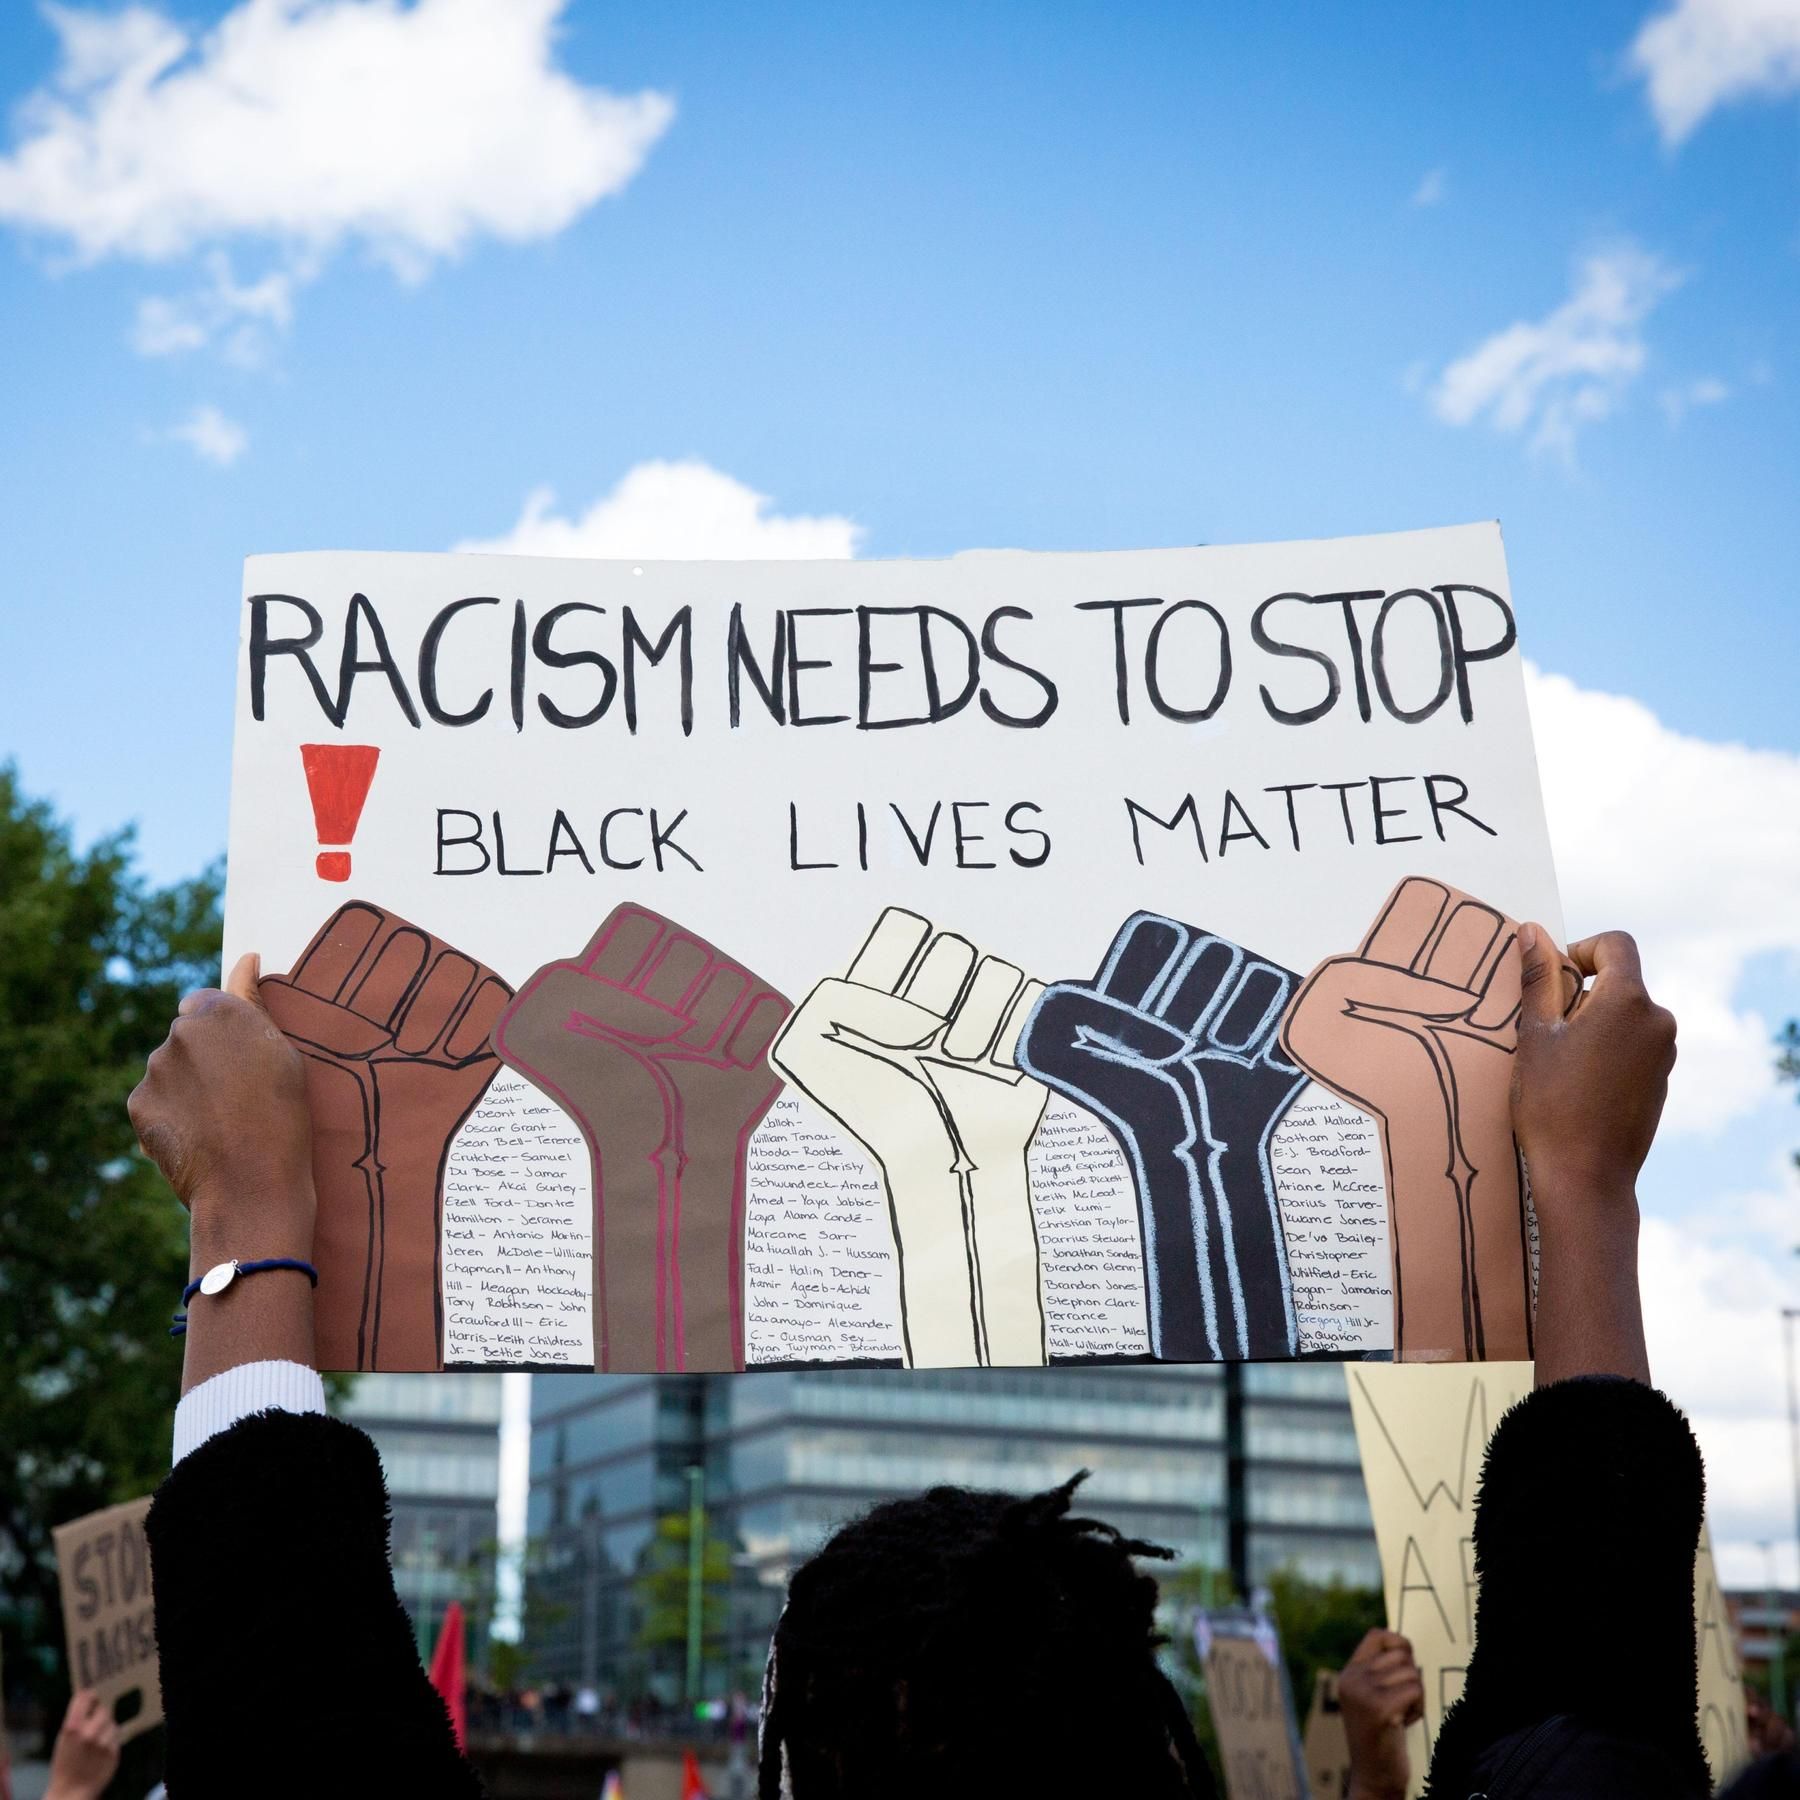 RACISM NEEDS TO STOP
!
BLACK LIVES MATTER
Walter
Scott-
Deont Keller-
Oscar Grant-
Sean Bell- Terence
Crutcher- Samuel
Du Bose - Jamar
Clark- Akai Gurley-
Ezell Ford- Dontre
Hamilton - Jerame
Reid - Antonio Martin-
Jeren McDole-William
Chapman II - Anthony
Hill - Meagan Hockaday-
Tony Robinson - John
Crawford III - Eric
Harris-Keith Childress
Jr. - Bettie Jones
Oury
Jalloh-
William Tonou-
Mboda- Rooble
Warsame- Christy
Schwundeck-Amed
Amed - Yaya Jabbie-
Laya Alama Condé -
Mareame Sarr-
Matiullah J. - Hussam
Fadl- Halim Dener-
Aamir Ageeb-Achidi
John - Dominique
Koumayo- Alexander
C. - Ousman Sey-
Ryan Twyman- Brandon
Webber
Kevin
Matthews-
Michael Noel
- Leroy Browning
- Miguel Espinal-
Nathaniel Pickett-
Keith McLeod-
Felix Kumi-
Christian Taylor-
Darrius Stewart
- Jonathan Sanders-
Brendon Glenn-
Brandon Jones-
Stephon Clark-
Terrance
Franklin- Miles
Hall-William Green
Samuel
David Mallard-
Botham Jean-
E.J. Bradford-
Sean Reed-
Ariane McCree-
Darius Tarver-
Kwame Jones-
De'von Bailey-
Christopher
Whitfield-Eric
Logan- Jamarion
Robinson-
Gregory Hill Jr-
Ja Quavion
Slaton
STOP
RACIS
W